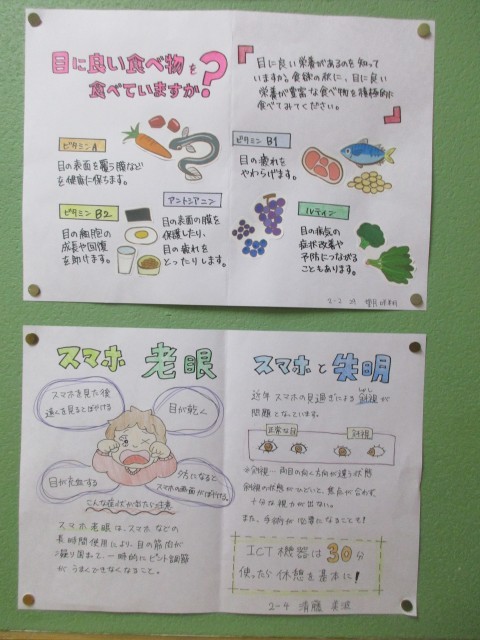 目に良い食べ物を
食べていますか?
『目に良い栄養があるのを知って
いますか。普段の秋に、目に良い
栄養が豊富な食べ物を積極的に
食べてみてください。』
ビタミンA
目の表面を覆う膜などを
健康に保ちます。
ビタミンB1
目の疲れを
やわらげます。
ビタミンB2
目の細胞の
成長や回復
を助けます。
アントシアニン
目の表面の膜を
保護したり、
目の疲れを
とったりします。
ルテイン
目の病気の
症状改善や
予防につながる
こともあります。
2-2
スマホ 老眼
スマホを見た後
遠くを見るとぼやける
目が乾く
目が充血する
夕方になると、
スマホの画面がぼやける。
こんな症状が出たら注意
スマホ老眼は、スマホなどの
長時間使用により、目の筋肉が
凝り固まって、一時的にピント調節
がうまくできなくなること。
スマホと失明
近年スマホの見過ぎによる斜視が
しゃし
問題となっています。
正常な目
斜視
※斜視…両目の向く方向が違う状態
斜視の状態がひどいと、焦点が合わず、
十分な視力が出ない。
また、手術が必要になることも!
ICT機器は30分
使ったら休憩を基本に!
2-4